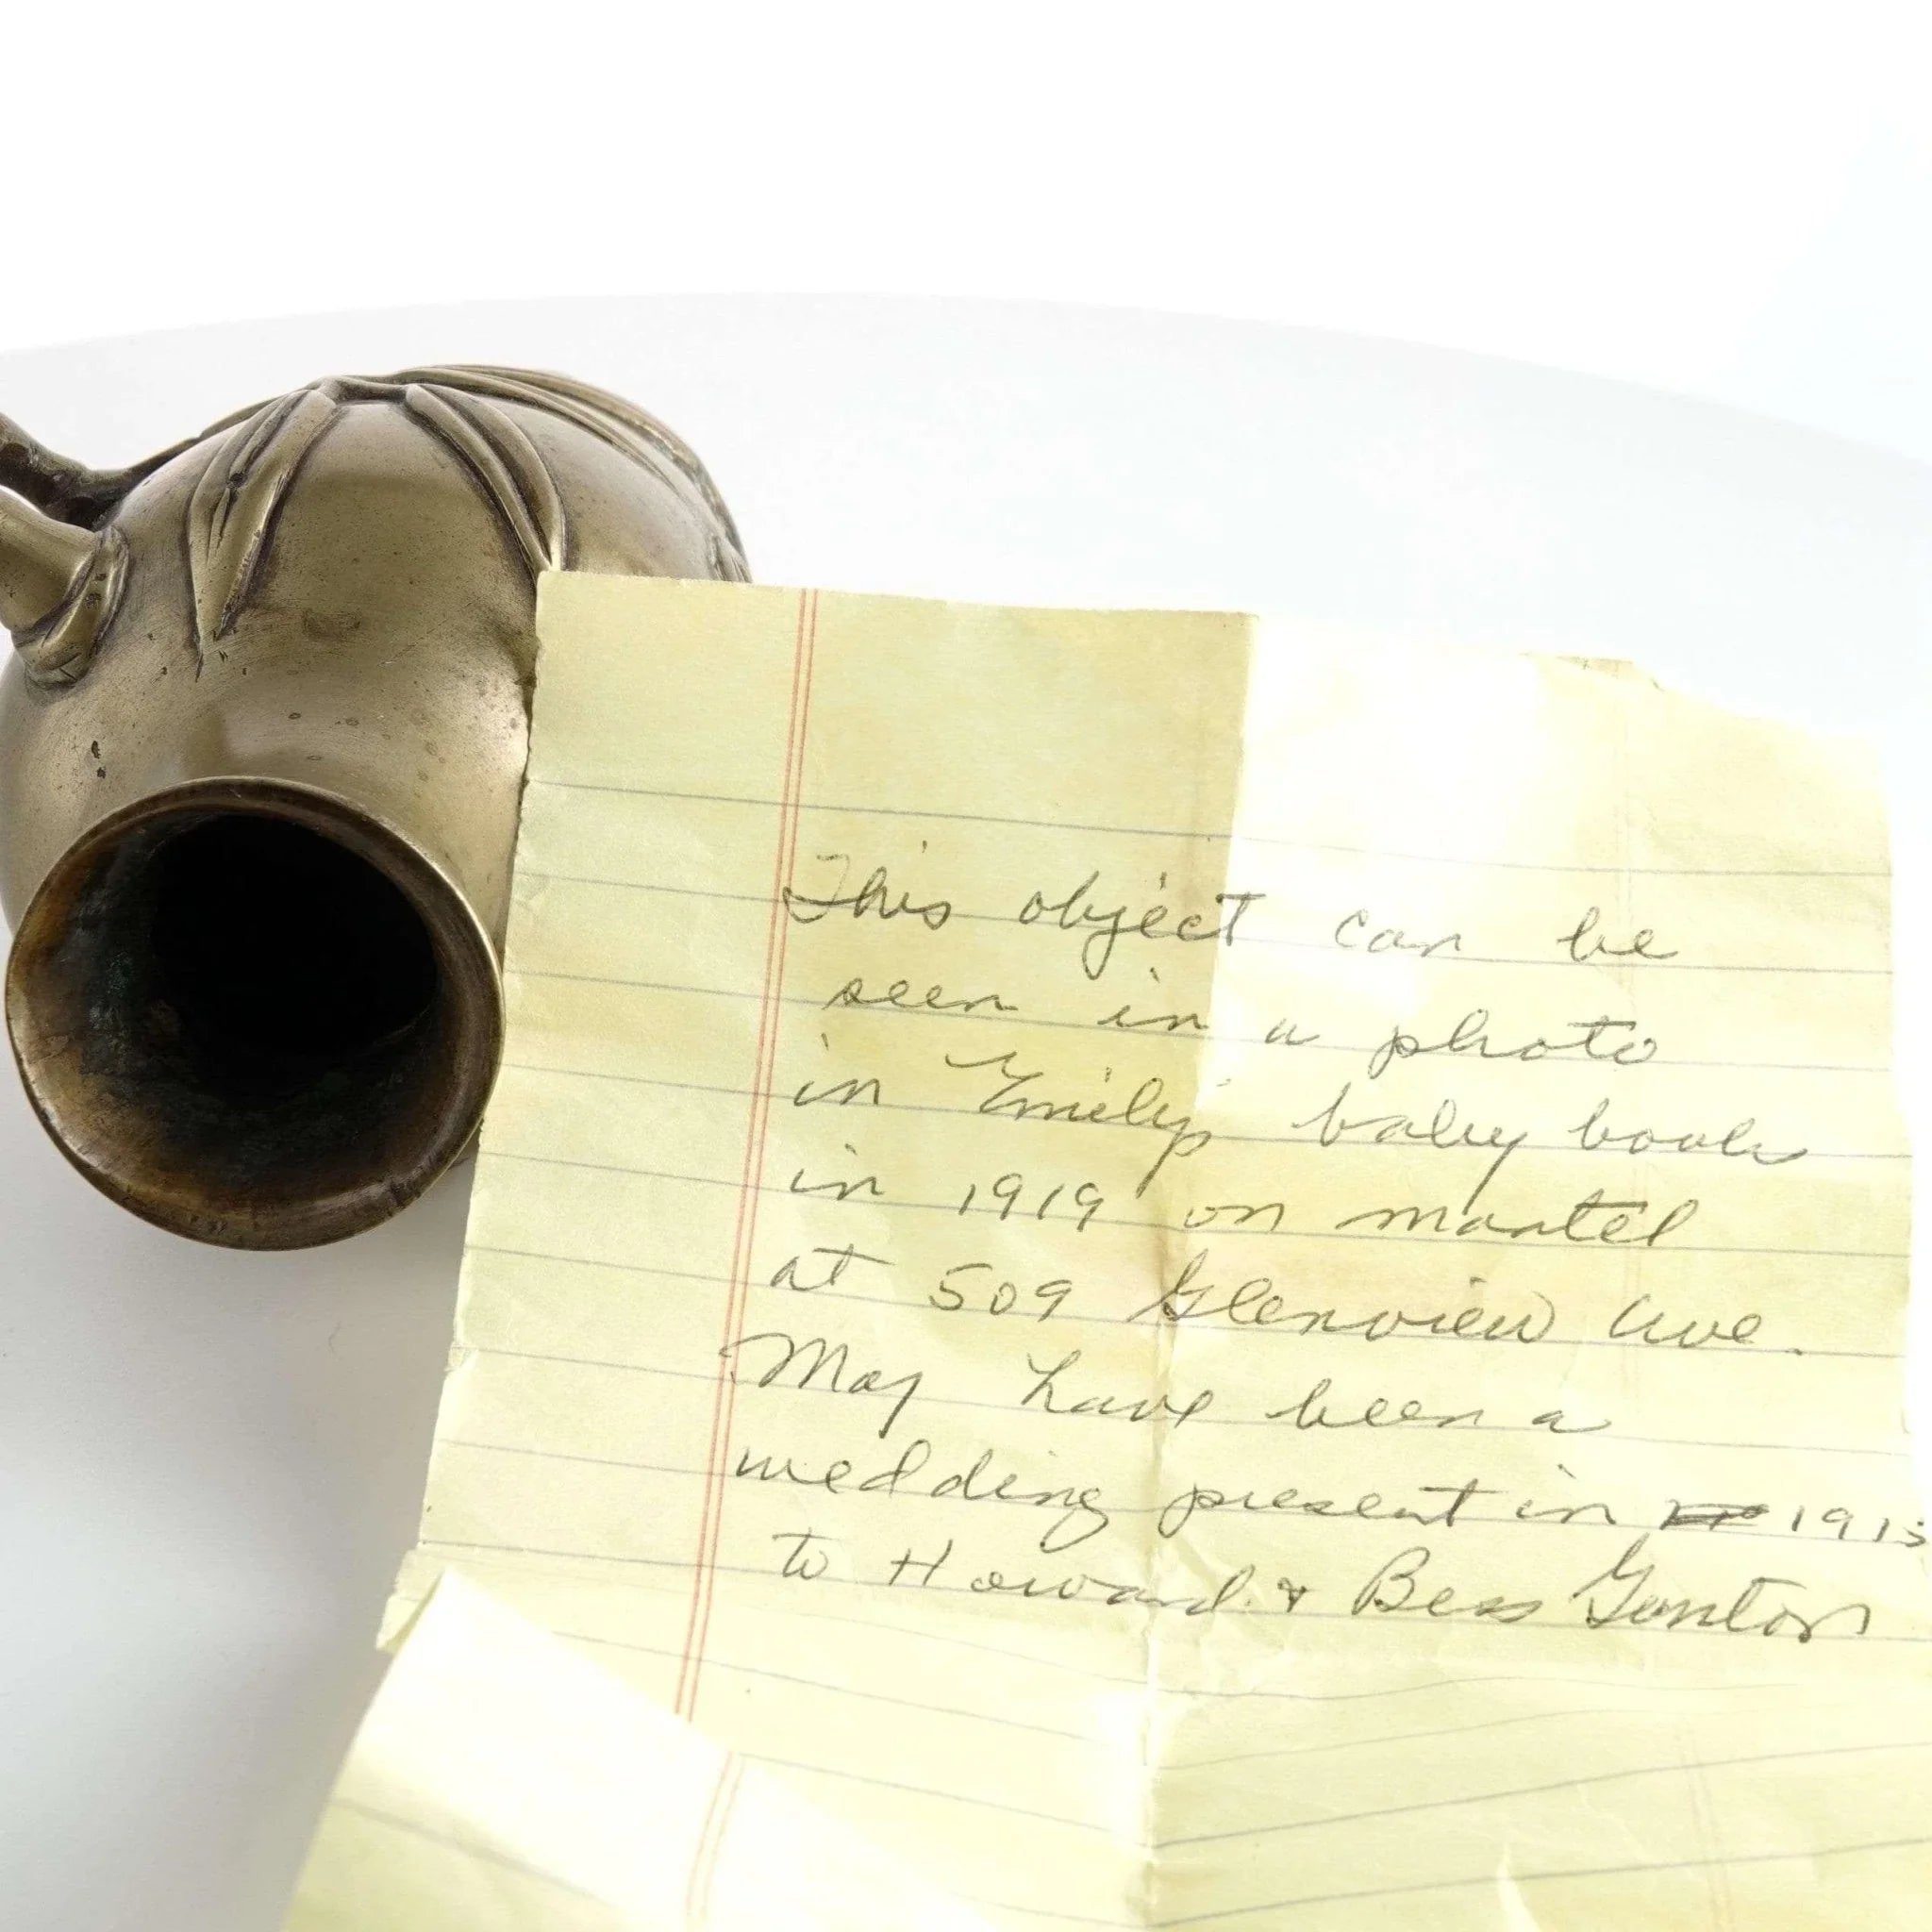 This object can be
seen in a photo
in Emily's baby book
in 1919 on mantel
at 509 Glenview Ave.
May have been a
wedding present in 1913
to Howard & Bess Genton